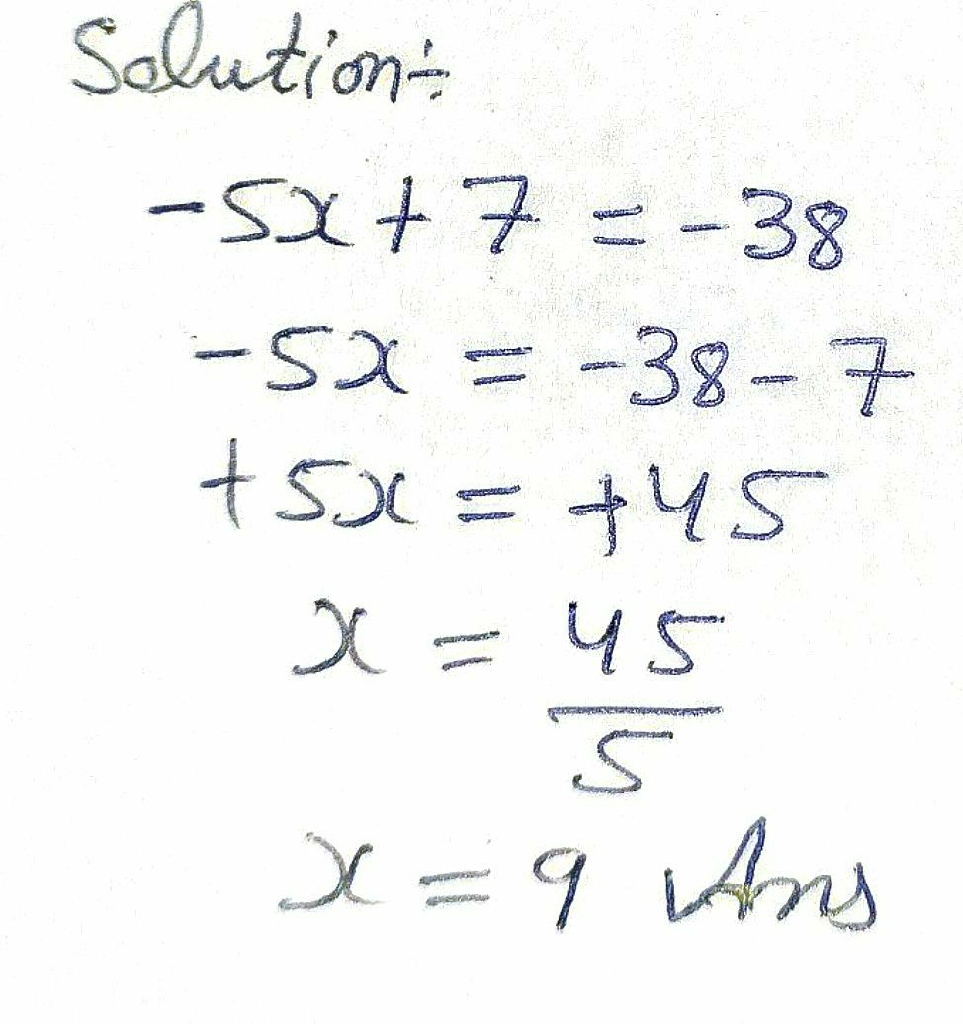 Solution:-
-5x + 7 = -38
-5x = -38 - 7
+5x = +45
x = 45/5
x = 9 Ans